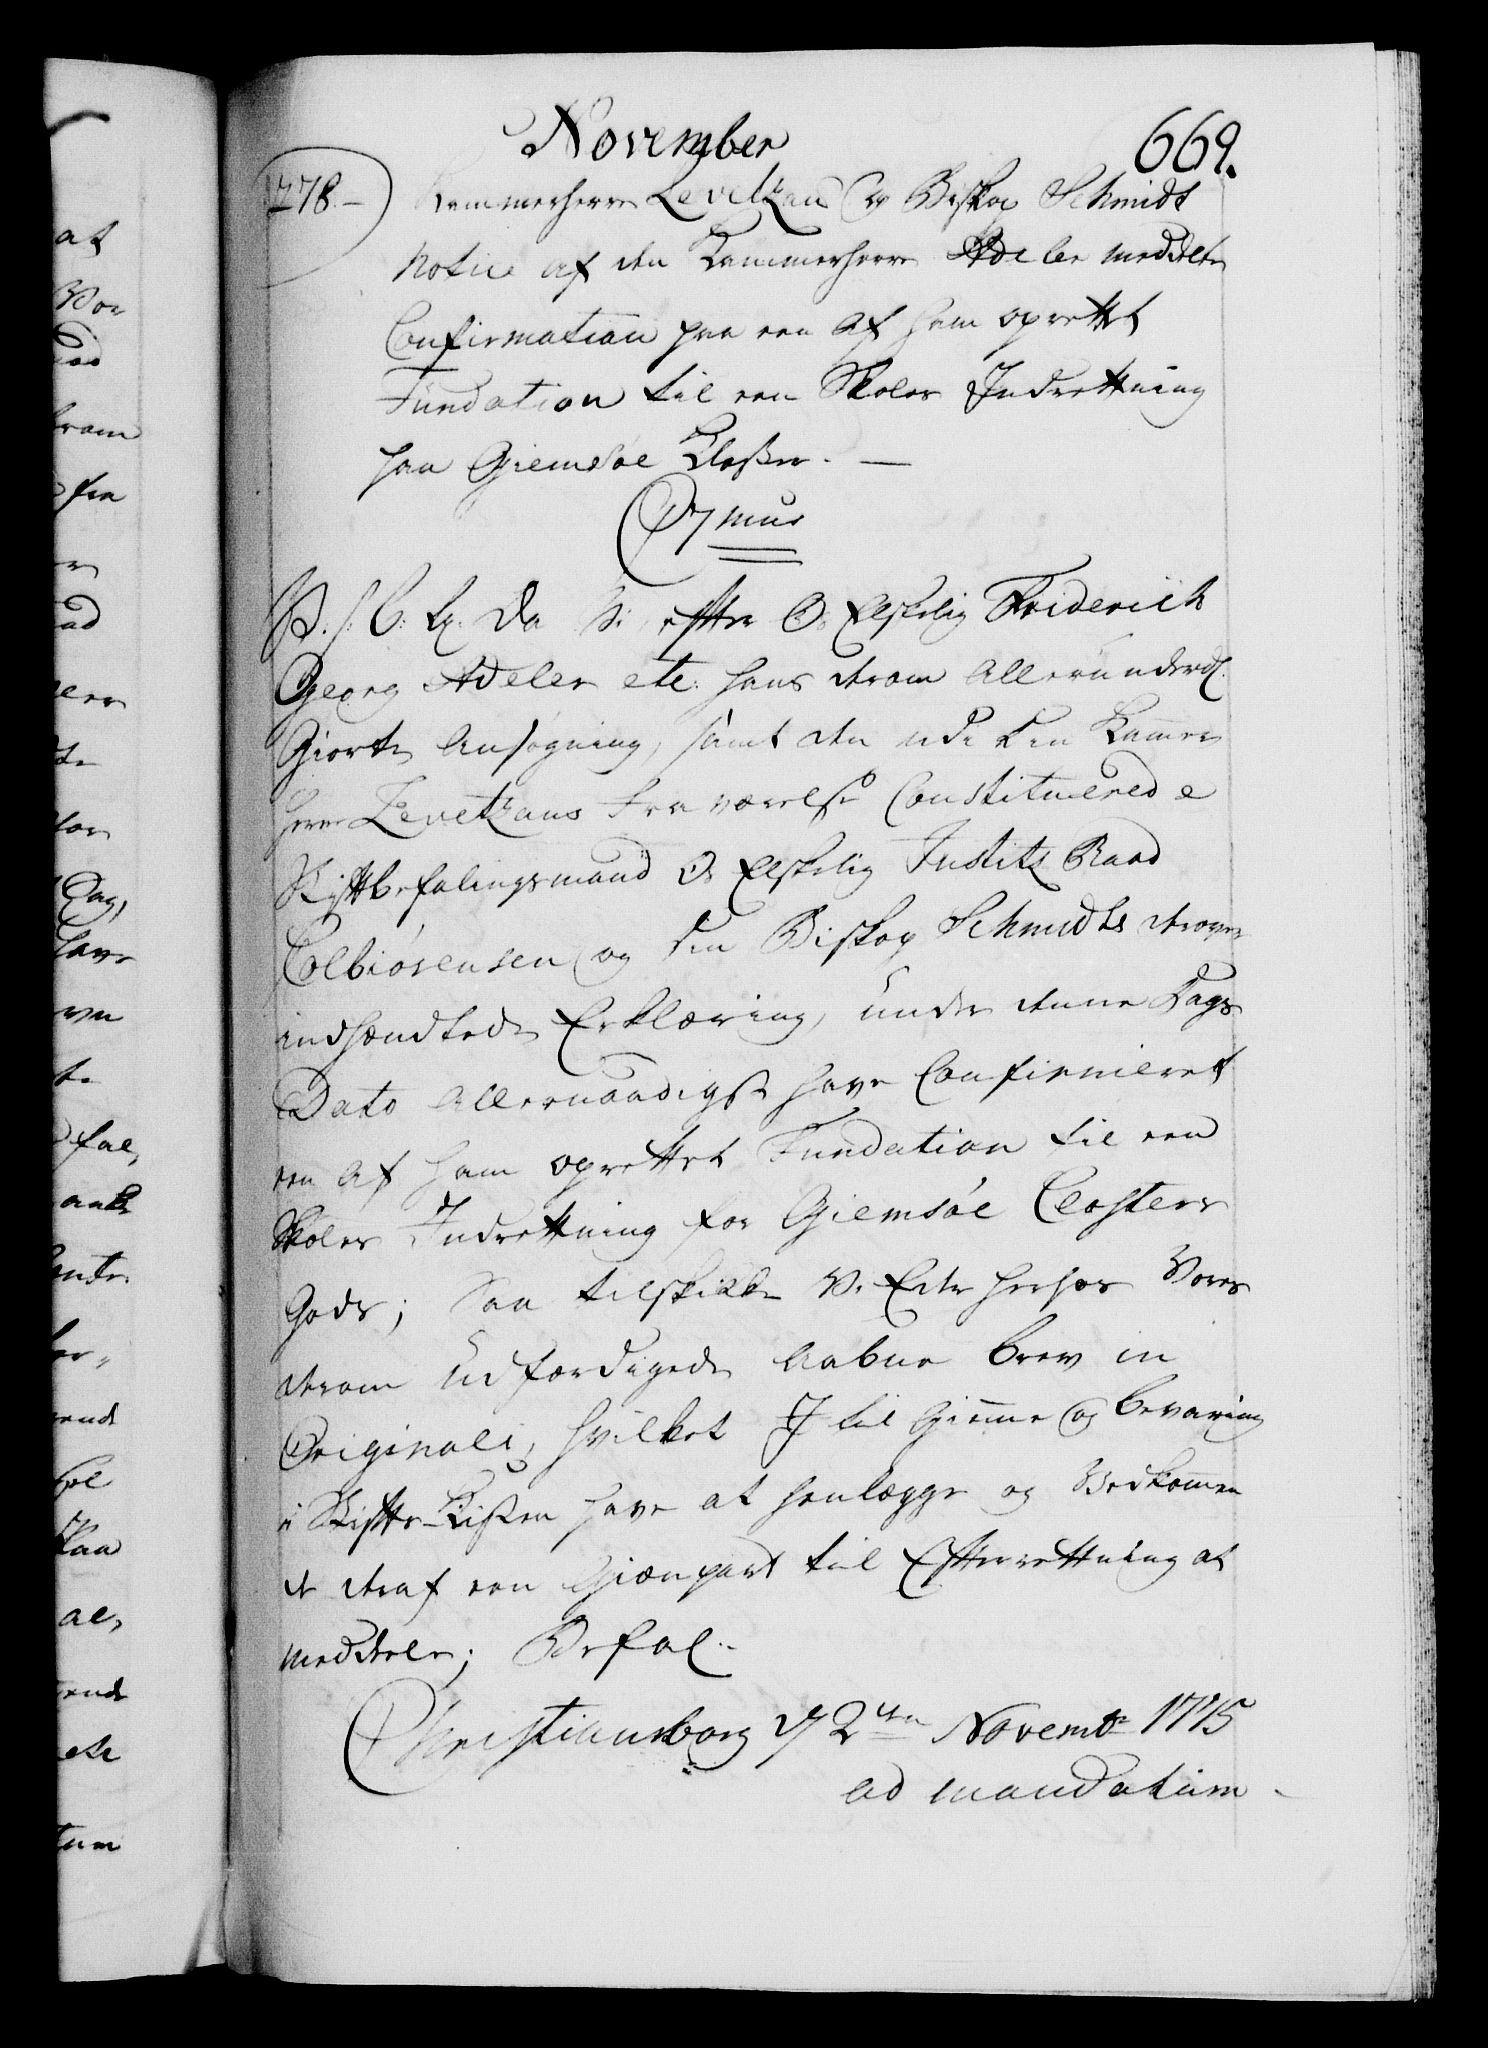 November
669.
778.
Kammerherre Levetzau og Biskop Schmidt
Notice af den Kammerherre Adeler meddelte
Confirmation paa een af ham oprettet
Fundation til een Skoles Indrettning
paa Giemsöe Kloster.
C 7mus
Da Vi efter Os Elskelig Friderich
Georg Adeler etc: hans derom Allerunderd:
Giorte Ansøgning, samt den udi den Kammer
herre Levetzaus Fraværelse Constituerede
Stiftbefalingsmand Os Elskelig Justits Raad
Colbiörensen og den Biskop Schmidts derover
indsendtede Erklæring, under denne Dags
Dato Allernaadigst have Confirmeret
een af ham oprettet Fundation til een
Skoles Indrettning for Giemsöe Closters
Gods; Saa tilskikke Vi Eder herhos Vores
derom Udfærdigede Aabne Brev in
Originali, hvilket I til Giemme og bevaring
i Stifts-Kisten have at henlægge og Vedkommen
de deraf een Gienpart til Efterrettning at
meddele; Befal.
Christiansborg d 2den Novembr 1775
ad mandatum
at
Vor
fra
ad
Dag,
have
fal,
ende
ende
etc
tum